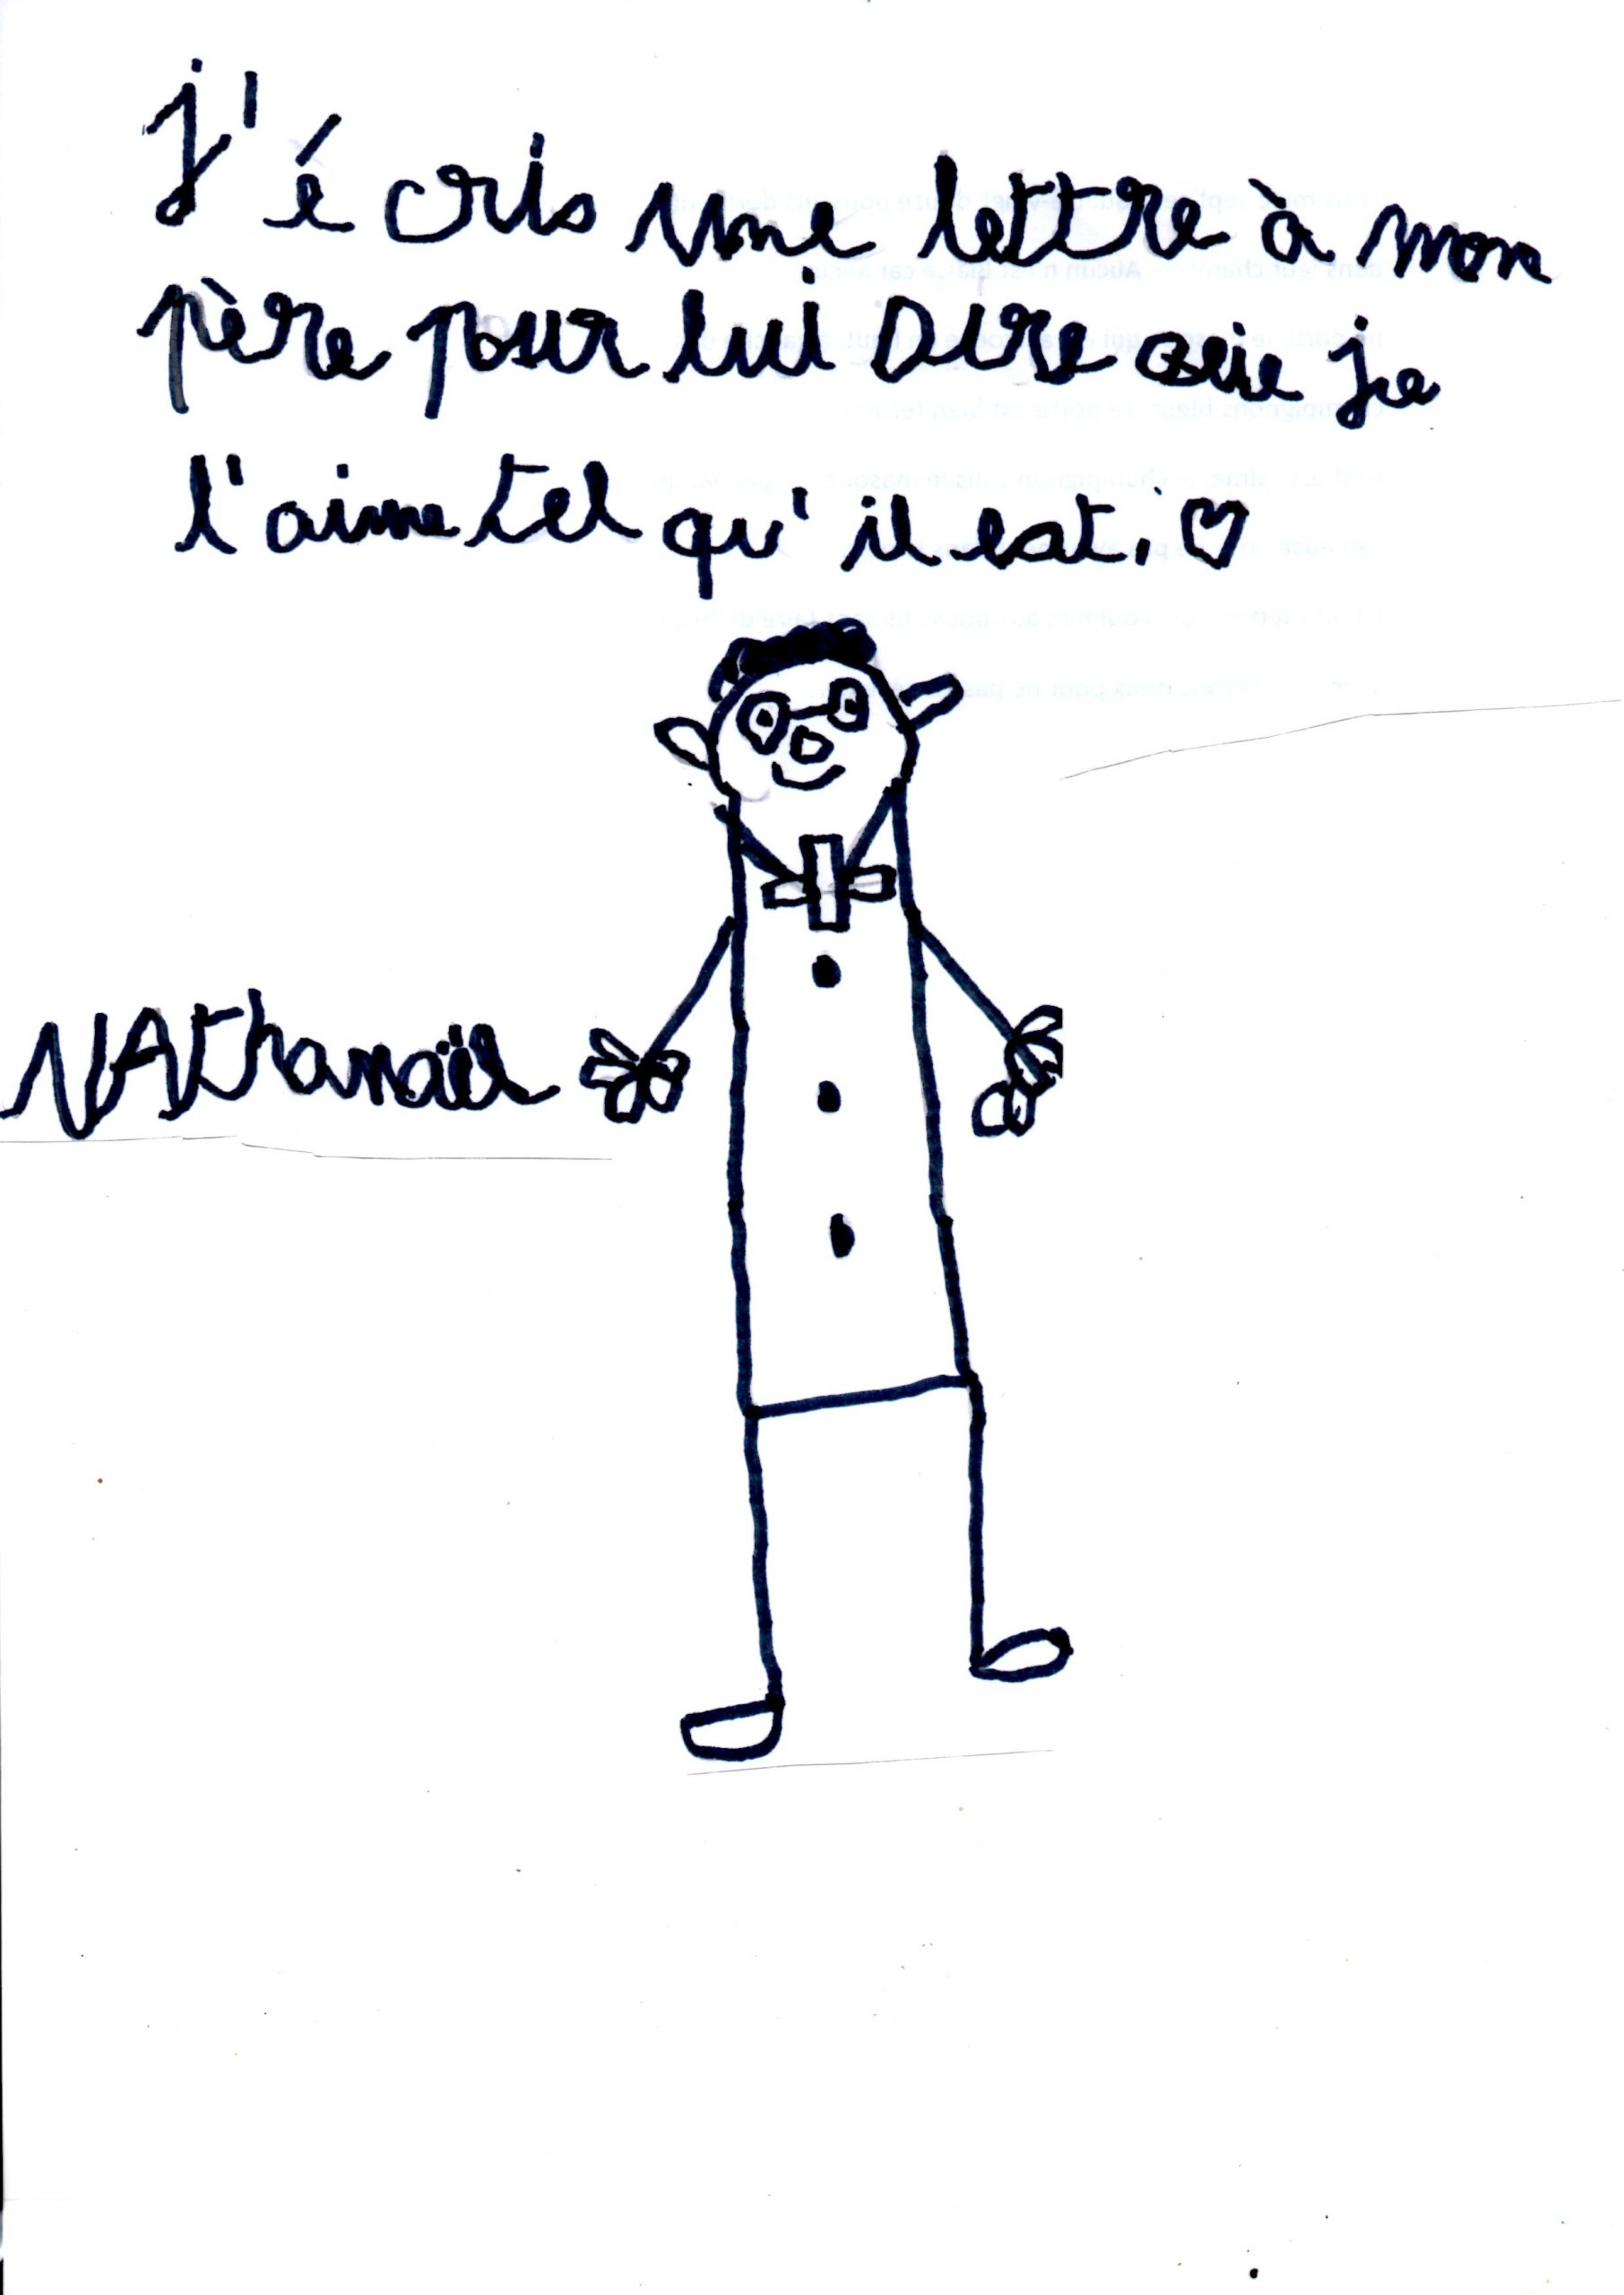 J'écris une lettre à mon
père pour lui Dire que je
l'aime tel qu'il est. ♡
NAthanaël